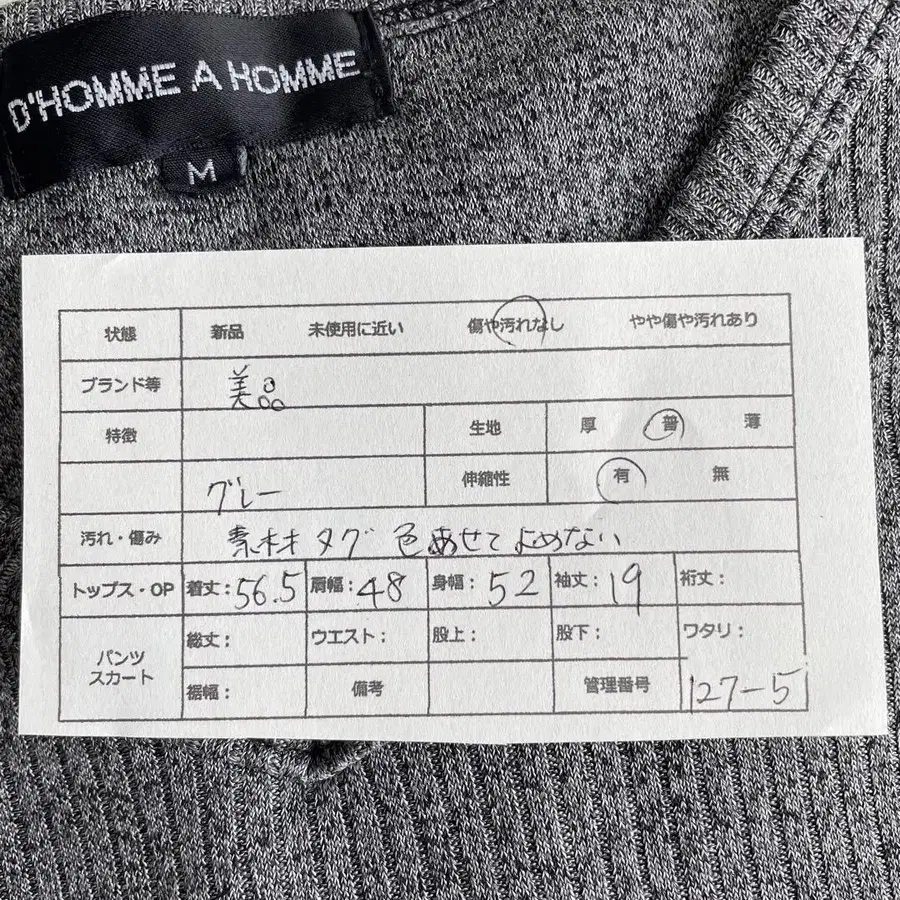 D'HOMME A HOMME
M
状態 新品 未使用に近い 傷や汚れなし やや傷や汚れあり
ブランド等 美品
特徴 生地 厚 普 薄
グレー 伸縮性 有 無
汚れ・傷み 素材タグ色あせてよめない
トップス・OP 着丈:56.5 肩幅:48 身幅:52 袖丈:19 裄丈:
パンツ スカート 総丈: ウエスト: 股上: 股下: ワタリ:
裾幅: 備考 管理番号 127-5